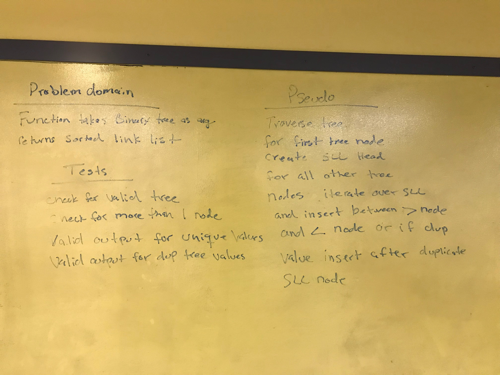 Problem domain
Function takes Binary tree as arg
returns sorted link list
Tests
check for valid tree
check for more then 1 node
Valid output for unique values
Valid output for dup tree values
Pseudo
Traverse tree
for first tree node
create SLL Head
for all other tree
nodes iterate over SLL
and insert between > node
and < node or if dup
value insert after duplicate
SLL node